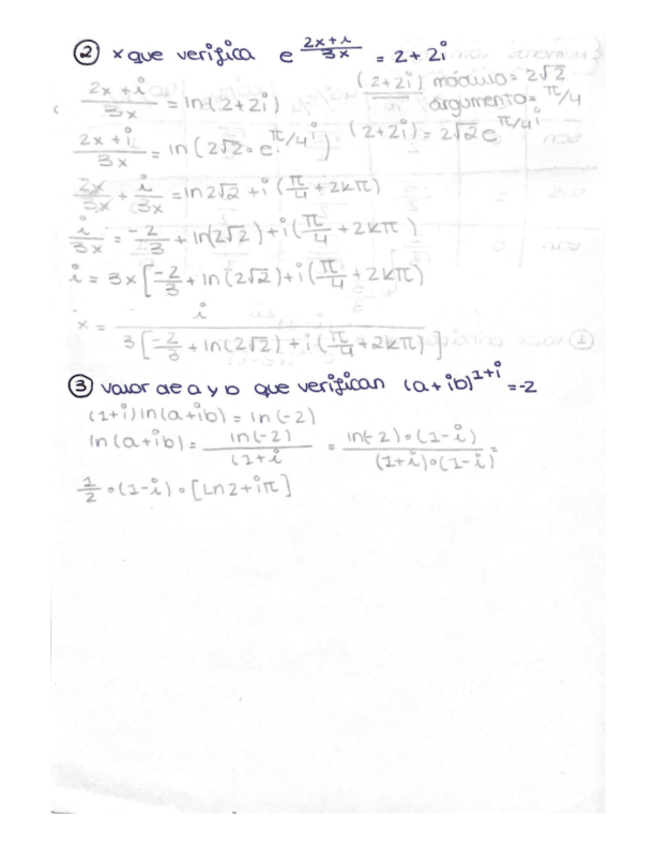 ② x que verifica e^(2x+i / 3x) = 2+2i
2x+i / 3x = ln(2+2i)
(2+2i) módulo = 2√2
argumento = π/4
2x+i / 3x = ln(2√2 · e^(π/4 i))
(2+2i) = 2√2 e^(π/4 i)
2x/3x + i/3x = ln 2√2 + i(π/4 + 2kπ)
i/3x = -2/3 + ln(2√2) + i(π/4 + 2kπ)
i = 3x[-2/3 + ln(2√2) + i(π/4 + 2kπ)
x = i / 3[-2/3 + ln(2√2) + i(π/4 + 2kπ)]
③ valor de a y b que verifican (a+ib)^(1+i) = -2
(1+i) ln(a+ib) = ln(-2)
ln(a+ib) = ln(-2) / (1+i = ln(-2)·(1-i) / (1+i)·(1-i) =
1/2 · (1-i) · [Ln2+iπ]